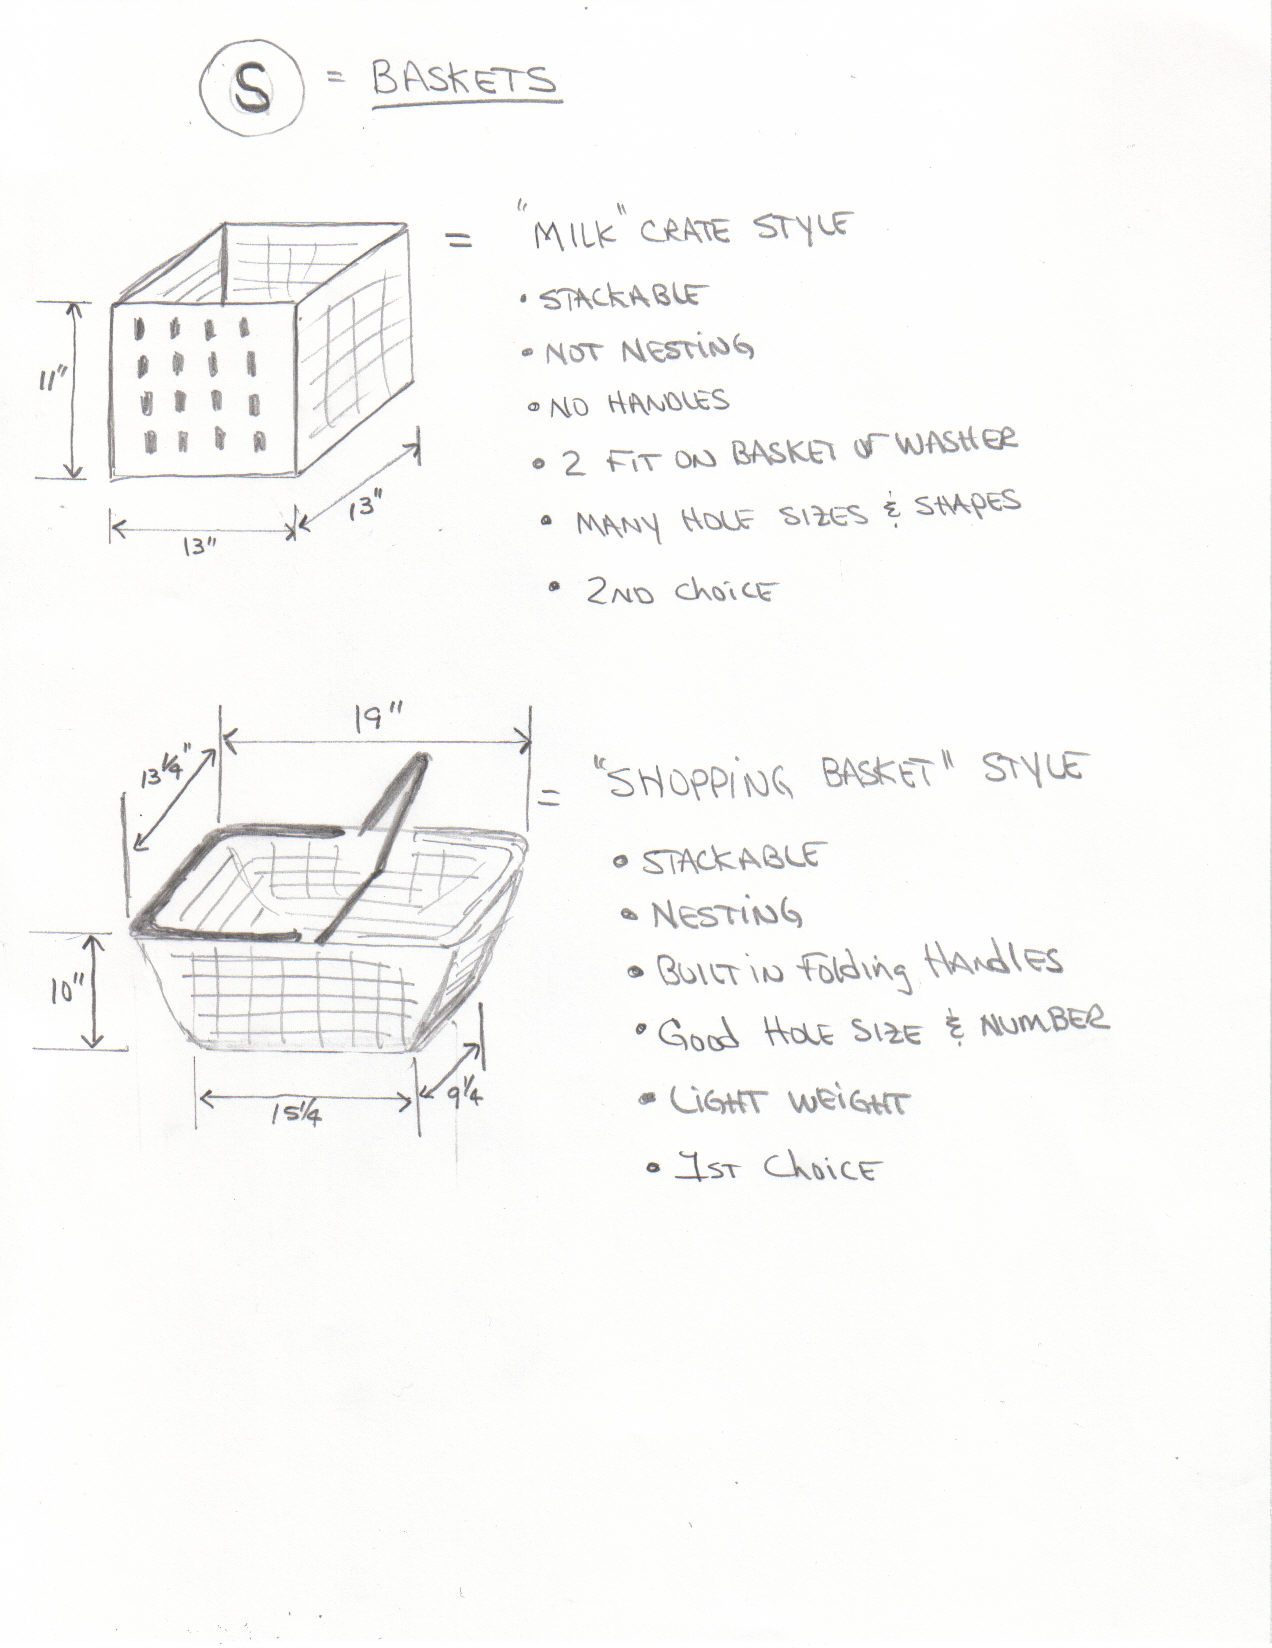 S = BASKETS
= "MILK" CRATE STYLE
• STACKABLE
• NOT NESTING
• NO HANDLES
• 2 FIT ON BASKET OF WASHER
• MANY HOLE SIZES & SHAPES
• 2ND CHOICE
11"
13"
13"
19"
13 1/4"
= "SHOPPING BASKET" STYLE
• STACKABLE
• NESTING
• BUILT IN Folding HANdLES
• Good HOLE SIZE & NUMBER
• LIGHT WEIGHT
• 1ST CHOICE
10"
15 1/4
9 1/4